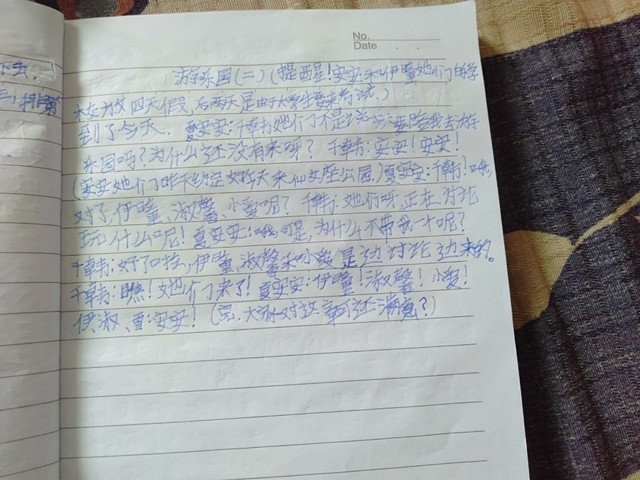 No.
Date
游乐园(二)(提醒!安安和伊瞳她们的学
校放四天假,后两天是由于大学生要来考试。)
到了今天,夏安安:千韩她们不是说要陪我去游
乐园吗?为什么还没有来呀?千韩:安安!安安!
(安安她们昨天约定好今天来仙女座公园)夏安安:千韩!哦,
对了伊瞳、淑馨、小爱呢?千韩:她们呀,正在讨论
玩什么呢!夏安安:可是,为什么不带我一个呢?
千韩:好了啦,伊瞳淑馨和小爱是边讨论边来的。
千韩:瞧!她们来了!夏安安:伊瞳!淑馨!小爱!
伊、淑、爱:安安!(大家对这章还满意?)
下去,